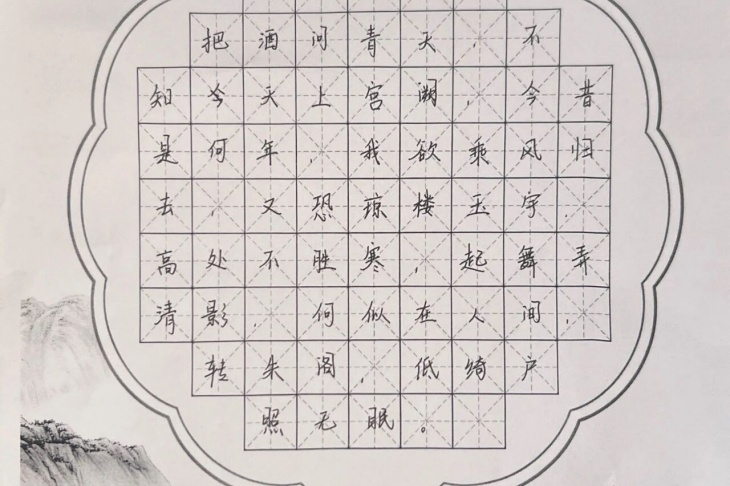 把酒问青天，不
知今天上宫阙，今昔
是何年，我欲乘风归
去，又恐琼楼玉宇，
高处不胜寒，起舞弄
清影，何似在人间，
转朱阁，低绮户
照无眠。